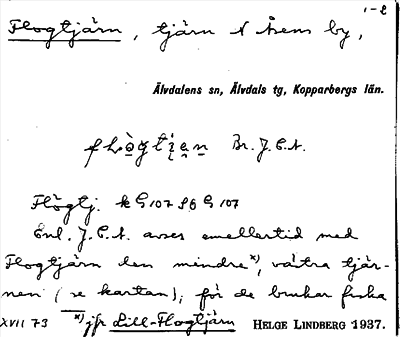 1-2
Flogtjärn, tjärn N Åsens by,
Älvdalens sn, Älvdals tg, Kopparbergs län.
Br. J.E.A.
Flögtj. k G 107 sö G 107
Enl. J.E.A. avses emellertid med
Flogtjärn den mindre x), västra tjär-
nen (se kartan), för de brukar fiska
XVII 73 x) jfr Lill-Flogtjärn HELGE LINDBERG 1937.